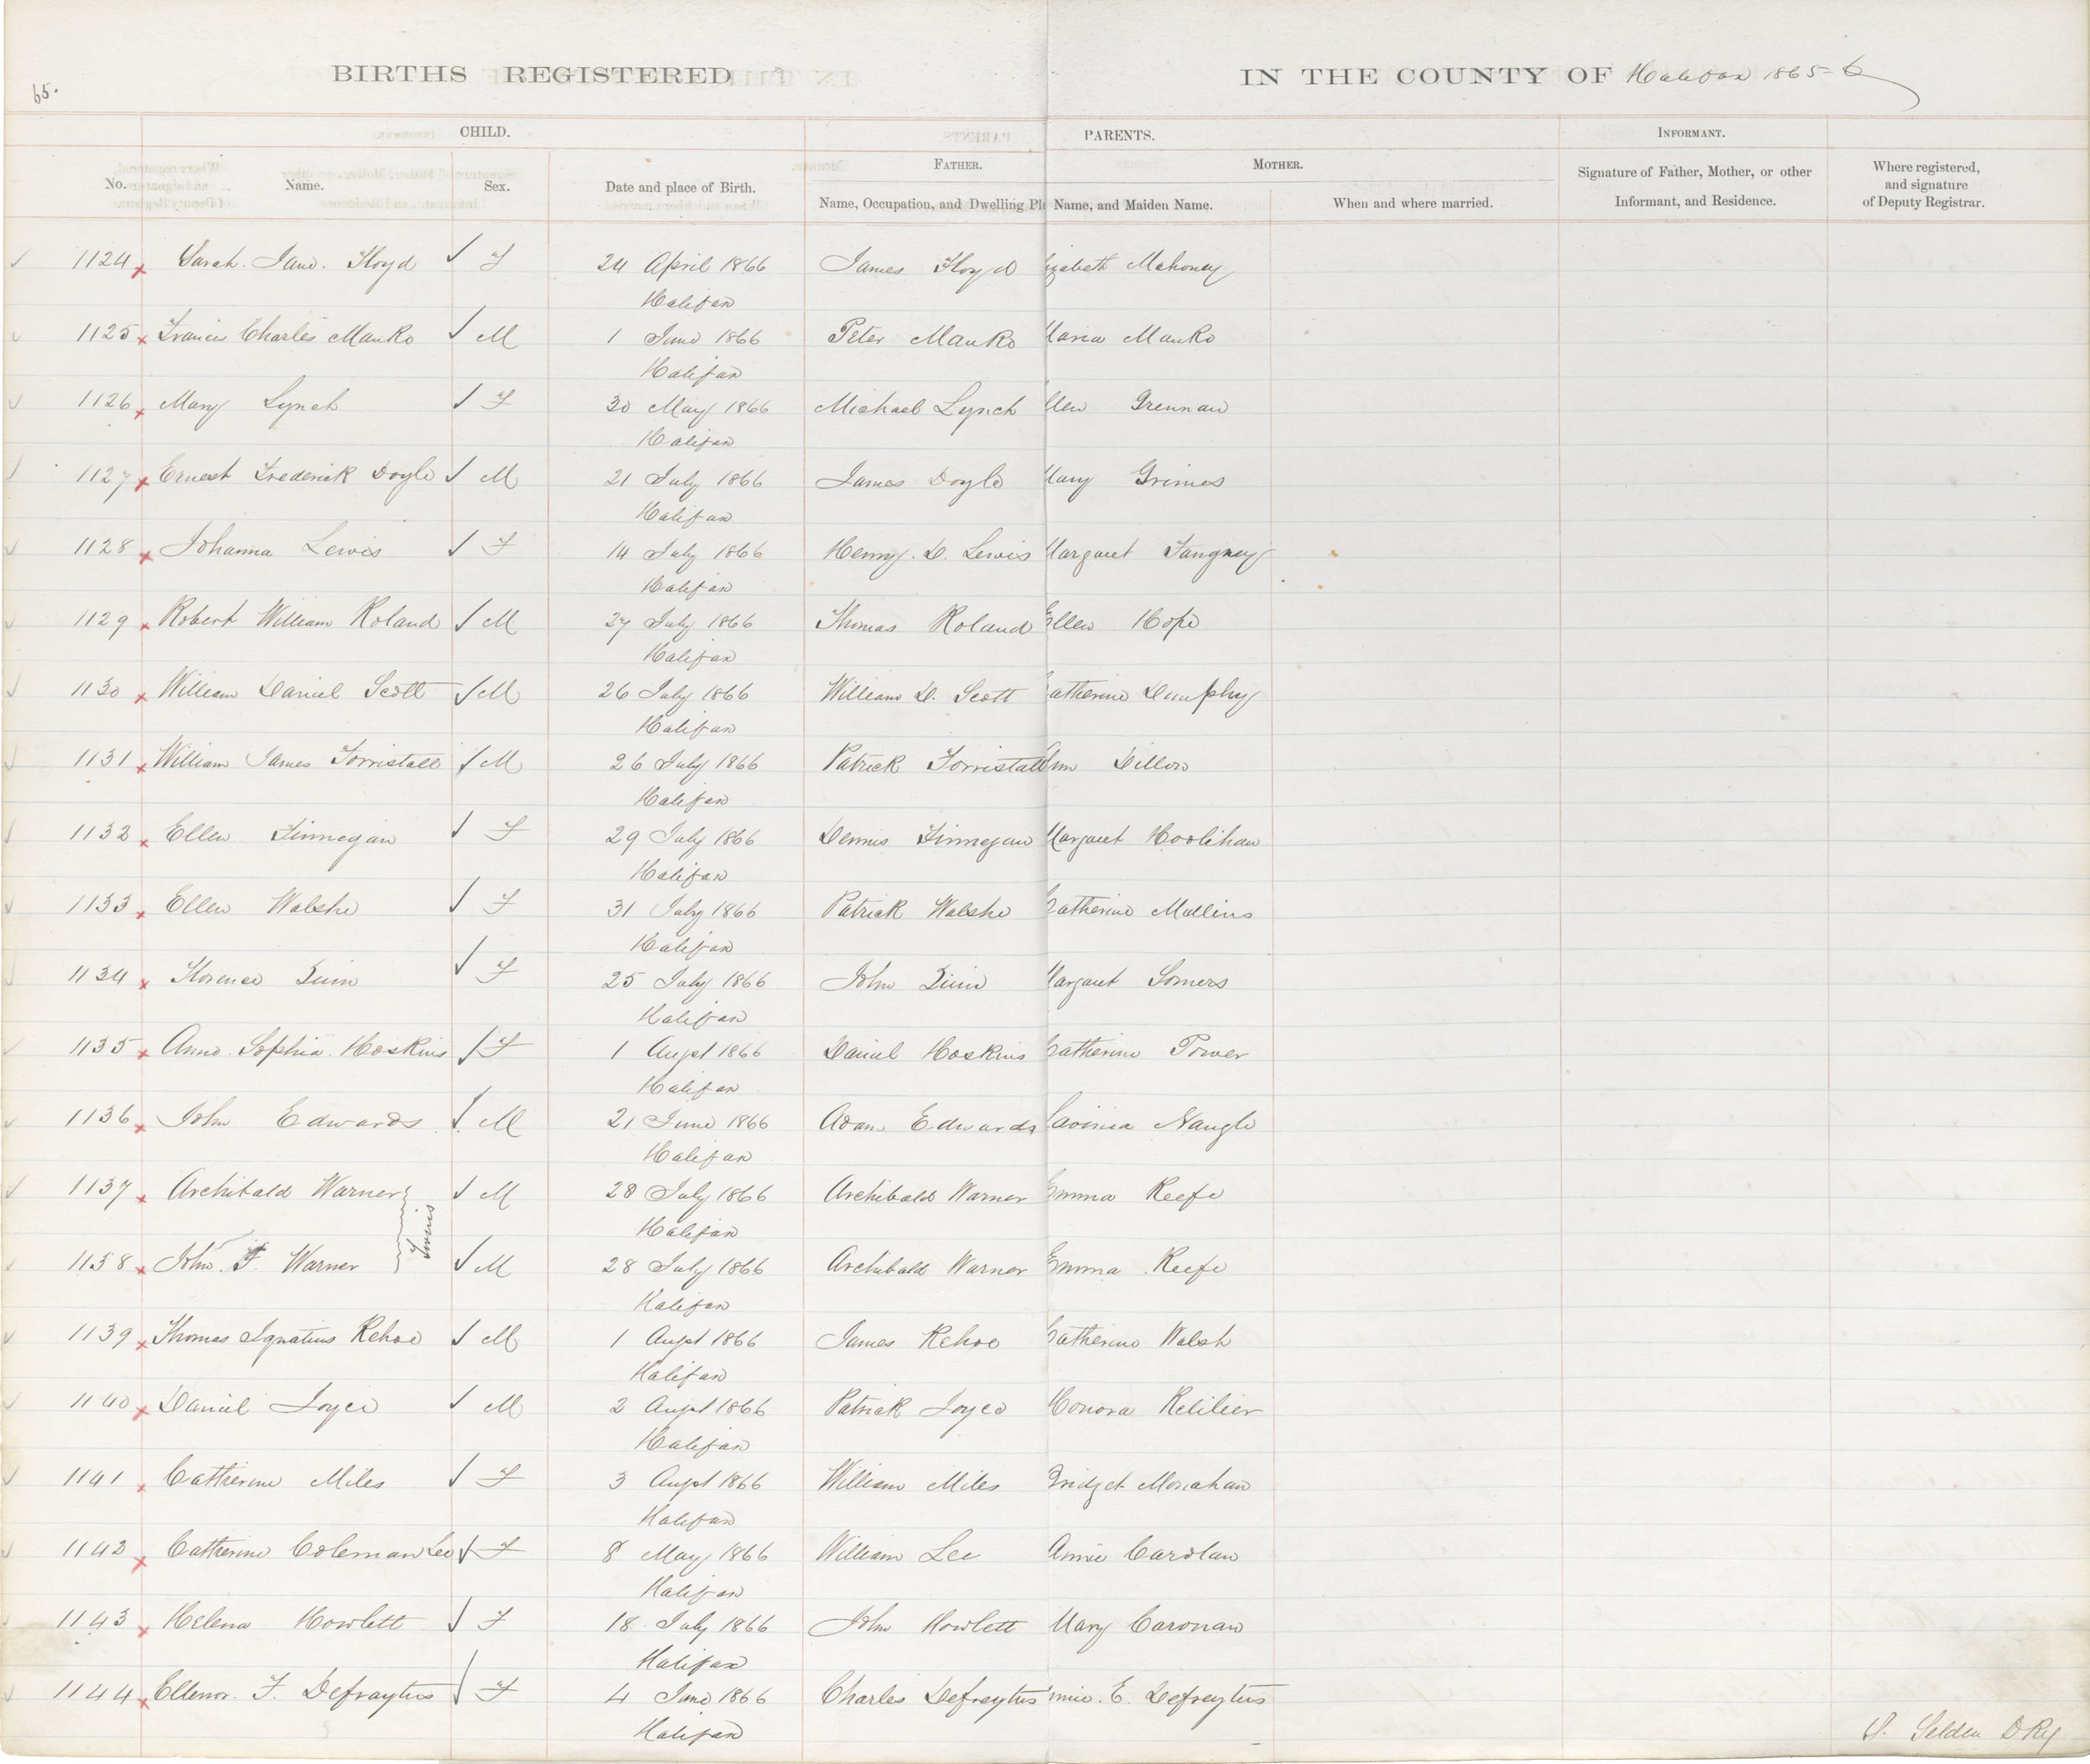 65.
BIRTHS REGISTERED IN THE COUNTY OF Halifax 1865-6
CHILD. PARENTS. INFORMANT.
FATHER. MOTHER.
No. Name. Sex. Date and place of Birth. Name, Occupation, and Dwelling Pl Name, and Maiden Name. When and where married. Signature of Father, Mother, or other Informant, and Residence. Where registered, and signature of Deputy Registrar.
1124 Sarah Jane Floyd F 24 April 1866 James Floyd izabeth Mahoney
Halifax
1125 Francis Charles Manko M 1 June 1866 Peter Manko Maria Manko
Halifax
1126 Mary Lynch F 30 May 1866 Michael Lynch llen Grennan
Halifax
1127 Ernest Frederick Doyle M 21 July 1866 James Doyle Mary Grimes
Halifax
1128 Johanna Lewis F 14 July 1866 Henry D. Lewis Margaret Tangney
Halifax
1129 Robert William Roland M 27 July 1866 Thomas Roland Ellen Hope
Halifax
1130 William Daniel Scott M 26 July 1866 William D. Scott Catherine Dumphy
Halifax
1131 William James Forristall M 26 July 1866 Patrick Forristall Ann Dillon
Halifax
1132 Ellen Finnegan F 29 July 1866 Dennis Finnegan Margaret Hoolihan
Halifax
1133 Ellen Walshe F 31 July 1866 Patrick Walshe Catherine Mullins
Halifax
1134 Florence Quin F 25 July 1866 John Quin Margaret Somers
Halifax
1135 Anne Sophia Hoskins F 1 Augst 1866 Daniel Hoskins Catherine Power
Halifax
1136 John Edwards M 21 June 1866 Adam Edwards Lavinia Nangle
Halifax
1137 Archibald Warner M 28 July 1866 Archibald Warner Emma Keefe
Twins
Halifax
1138 John F. Warner M 28 July 1866 Archibald Warner Emma Keefe
Halifax
1139 Thomas Ignatius Kehoe M 1 Augst 1866 James Kehoe Catherine Walsh
Halifax
1140 Daniel Joyce M 2 Augst 1866 Patrick Joyce Honora
Halifax
1141 Catherine Miles F 3 Augst 1866 William Miles Bridget Monahan
Halifax
1142 Catherine Coleman Lee F 8 May 1866 William Lee Annie Carolan
Halifax
1143 Helena Howlett F 18 July 1866 John Howlett Mary Caronan
Halifax
1144 Ellenor F. Defraytus F 4 June 1866 Charles Defreytus nnie E. Defreytus
Halifax
Selden D Rg